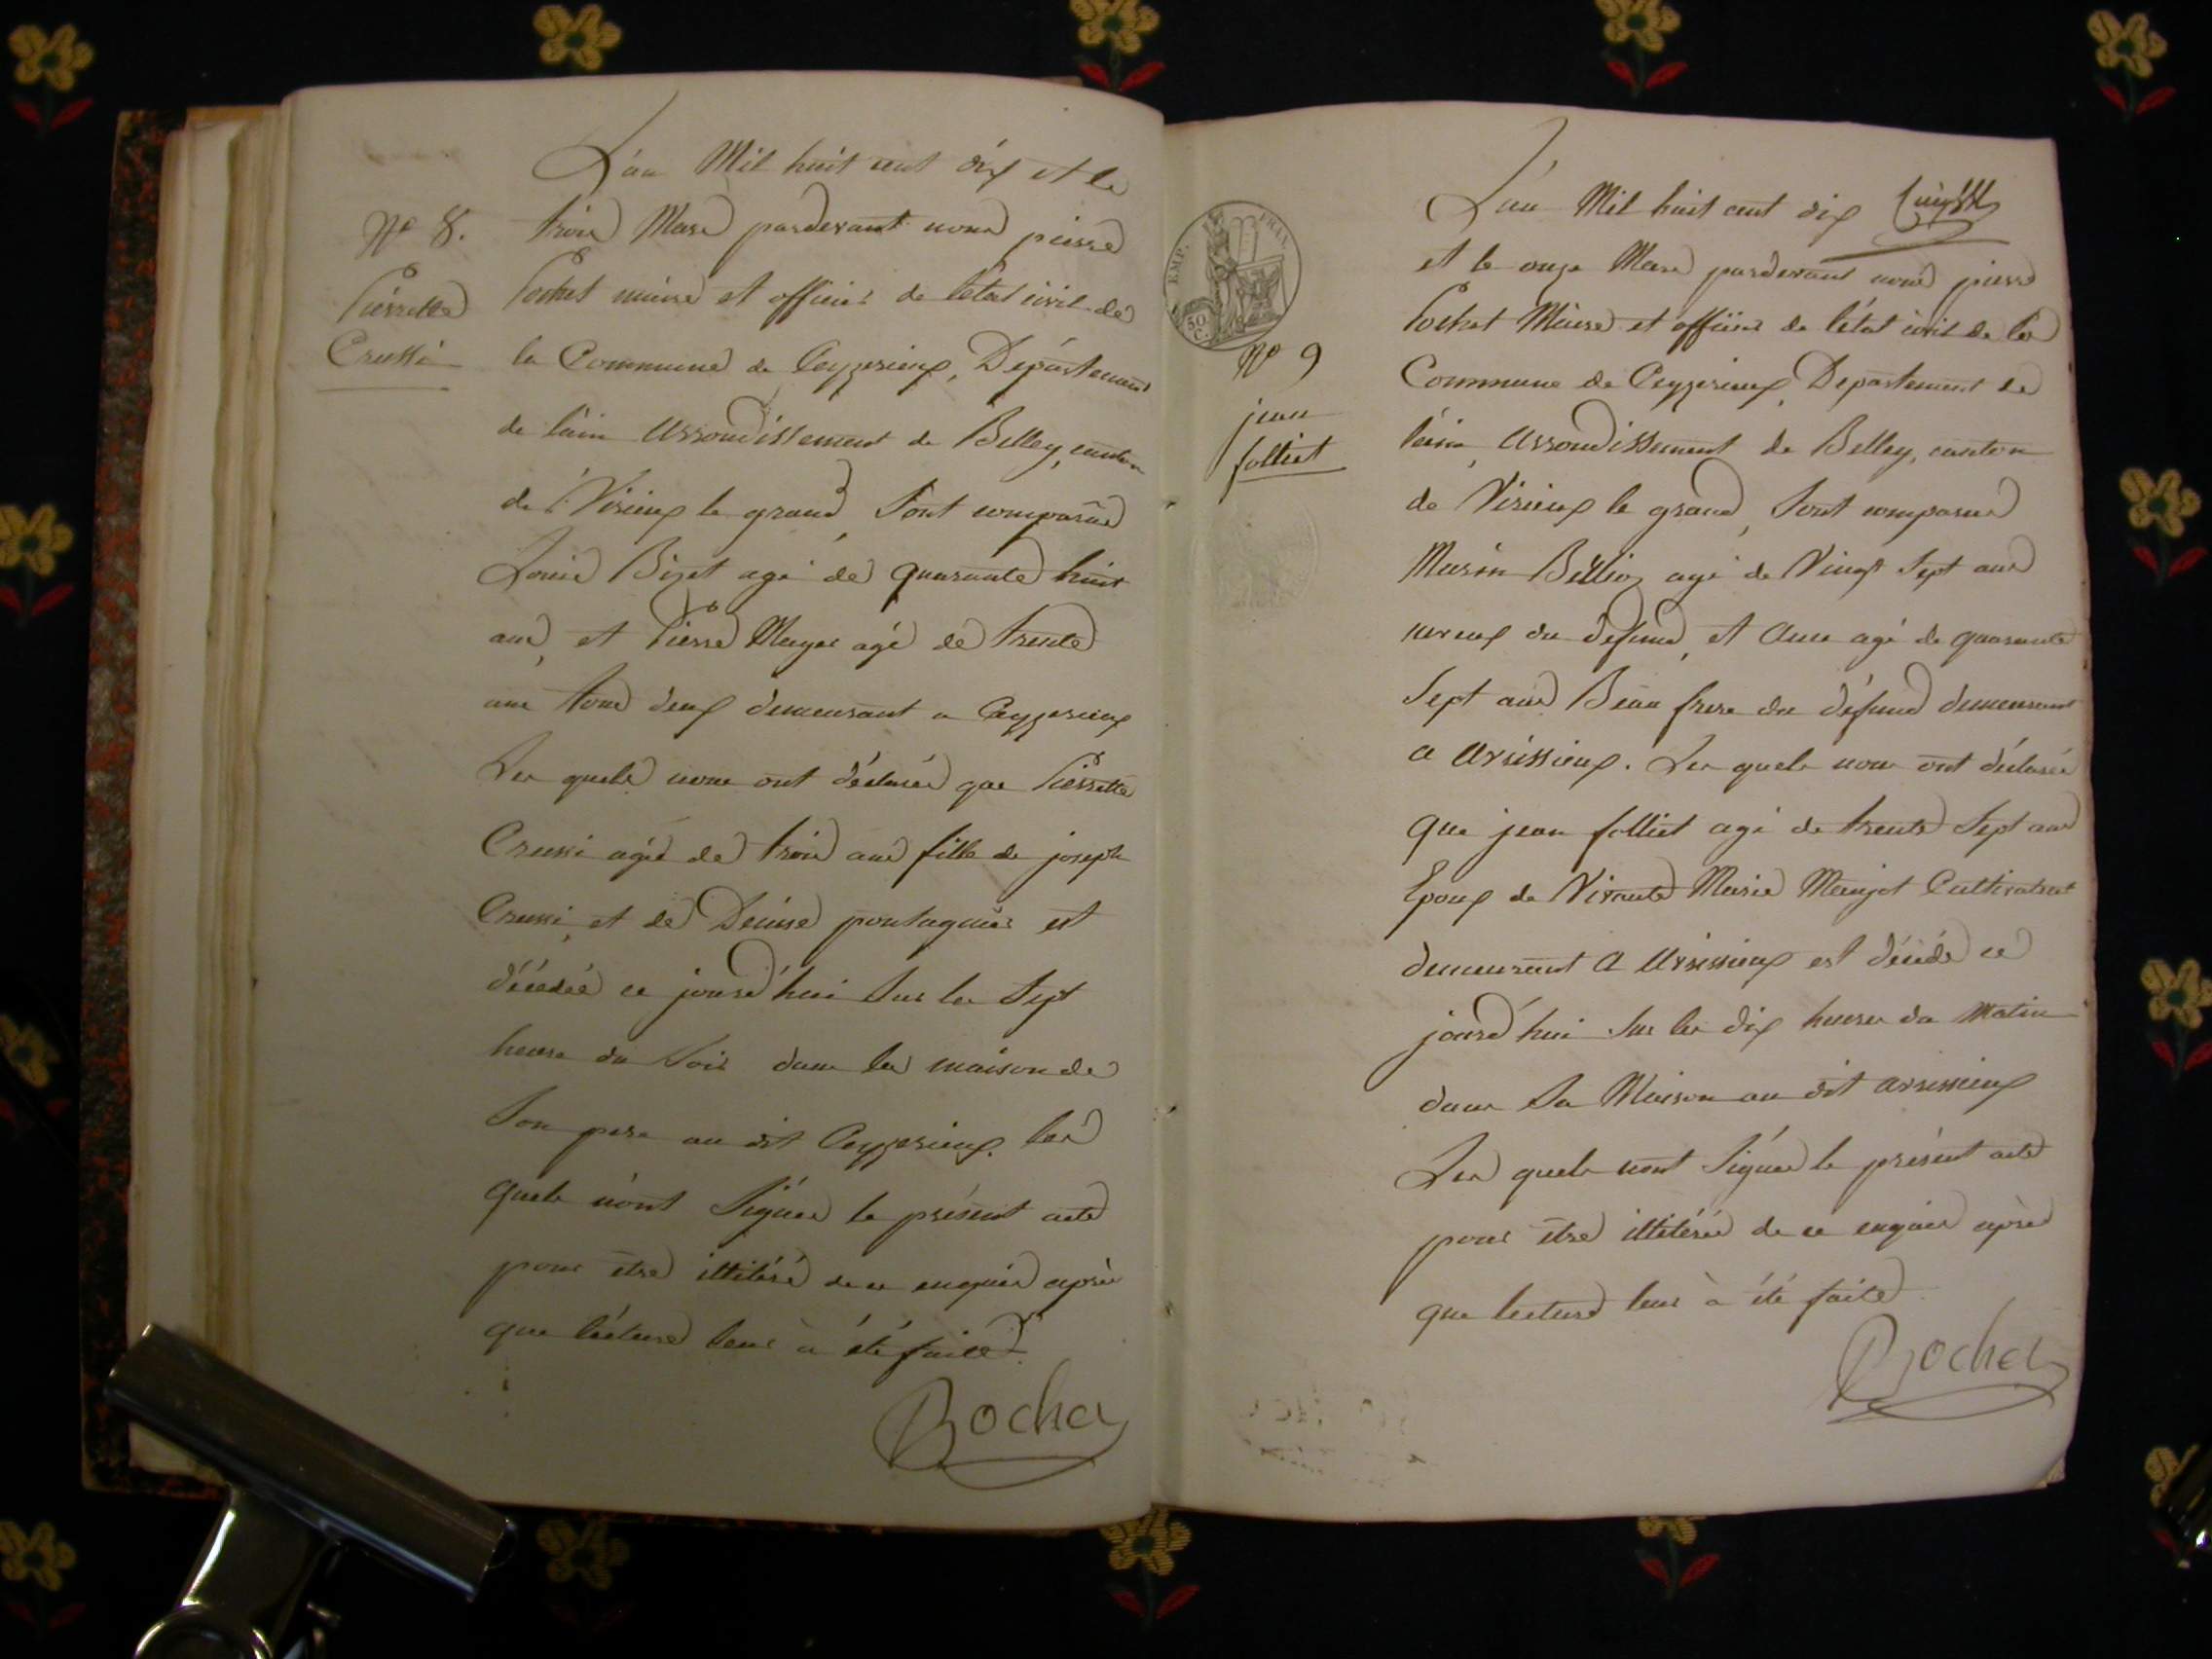 L'an Mil huit cent dix et le
N° 8. trois Mars pardevant nous pierre
Pierrette Pochet maire et officier de l'état civil de
Crussi la Commune de Ceyzerieux, Département
de l'ain arrondissement de Belley, canton
de Virieux le grand, Sont comparus
Louis Bizet agé de quarante huit
ans, et Pierre Mayer agé de trente
ans tous deux demeurant a Ceyzerieux
Les quels nous ont déclarés que Pierrette
Crussi agée de trois ans fille de joseph
Crussi, et de Denise pontagnier est
décédée ce jourd'hui Sur les Sept
heure du Soir dans la maison de
Son pere au dit Ceyzerieux. les
quels n'ont Signés le présent acte
pour etre illitéré de ce enquis après
que lecture leur a été faite.
Pochet
L'an Mil huit cent dix
et le onze Mars pardevant nous pierre
Pochet Maire et officier de l'état civil de la
Commune de Ceyzerieux, Departement de
l'ain, arrondissement de Belley, canton
de Virieux le grand, Sont comparus
Marin Billioz agé de Vingt Sept ans
neveux du defund, et agé de quarante
Sept ans Beau frere du défund demeurant
a Avrissieux. Les quels nous ont déclarés
que jean folliet agé de trente Sept ans
Epoux de Vivante Marie Maujot Cultivateur
demeurant a Avrissieux est décédé ce
jourd'hui Sur les dix heures du Matin
dans Sa Maison au dit avrissieux
Les quels n'ont Signés le présent acte
pour etre illitérés de ce enquis après
que lecture leur à été faite.
Pochet
EMP. FRAN.
50 C.
N° 9
jean
folliet